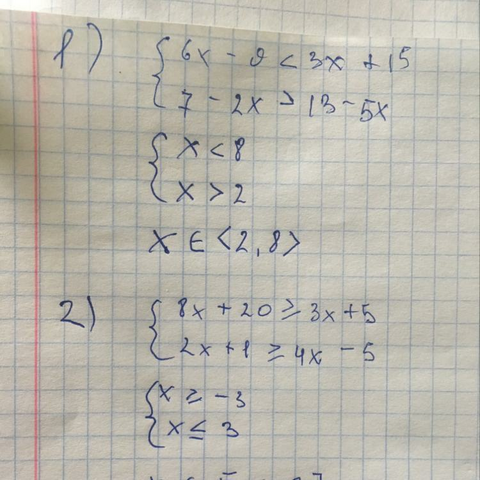 1) { 6x - 9 < 3x + 15
7 - 2x > 13 - 5x
{ x < 8
x > 2
x ∈ <2, 8>
2) { 8x + 20 ≥ 3x + 5
2x + 1 ≥ 4x - 5
{ x ≥ -3
x ≤ 3